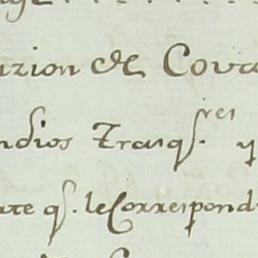 azion de Cova
ndios Trasq.res y
ate q. le Correspond